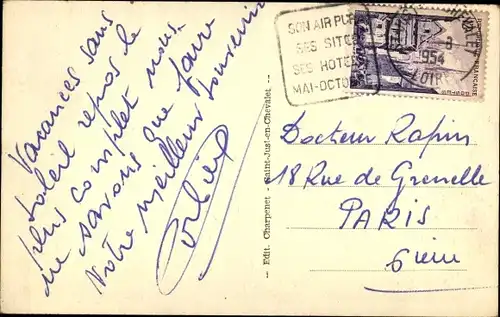 Vacances sans
soleil repos le
plus complet nous
ne savons que faire
Notre meilleur souvenir
SON AIR PUR
SES SITES
SES HOTELS
MAI-OCTOBRE
9
1954
LOIRE
FRANÇAISE
Edit. Charpenet - Saint-Just-en-Chevalet
Docteur Rapin
18 Rue de Grenelle
PARIS
6ième